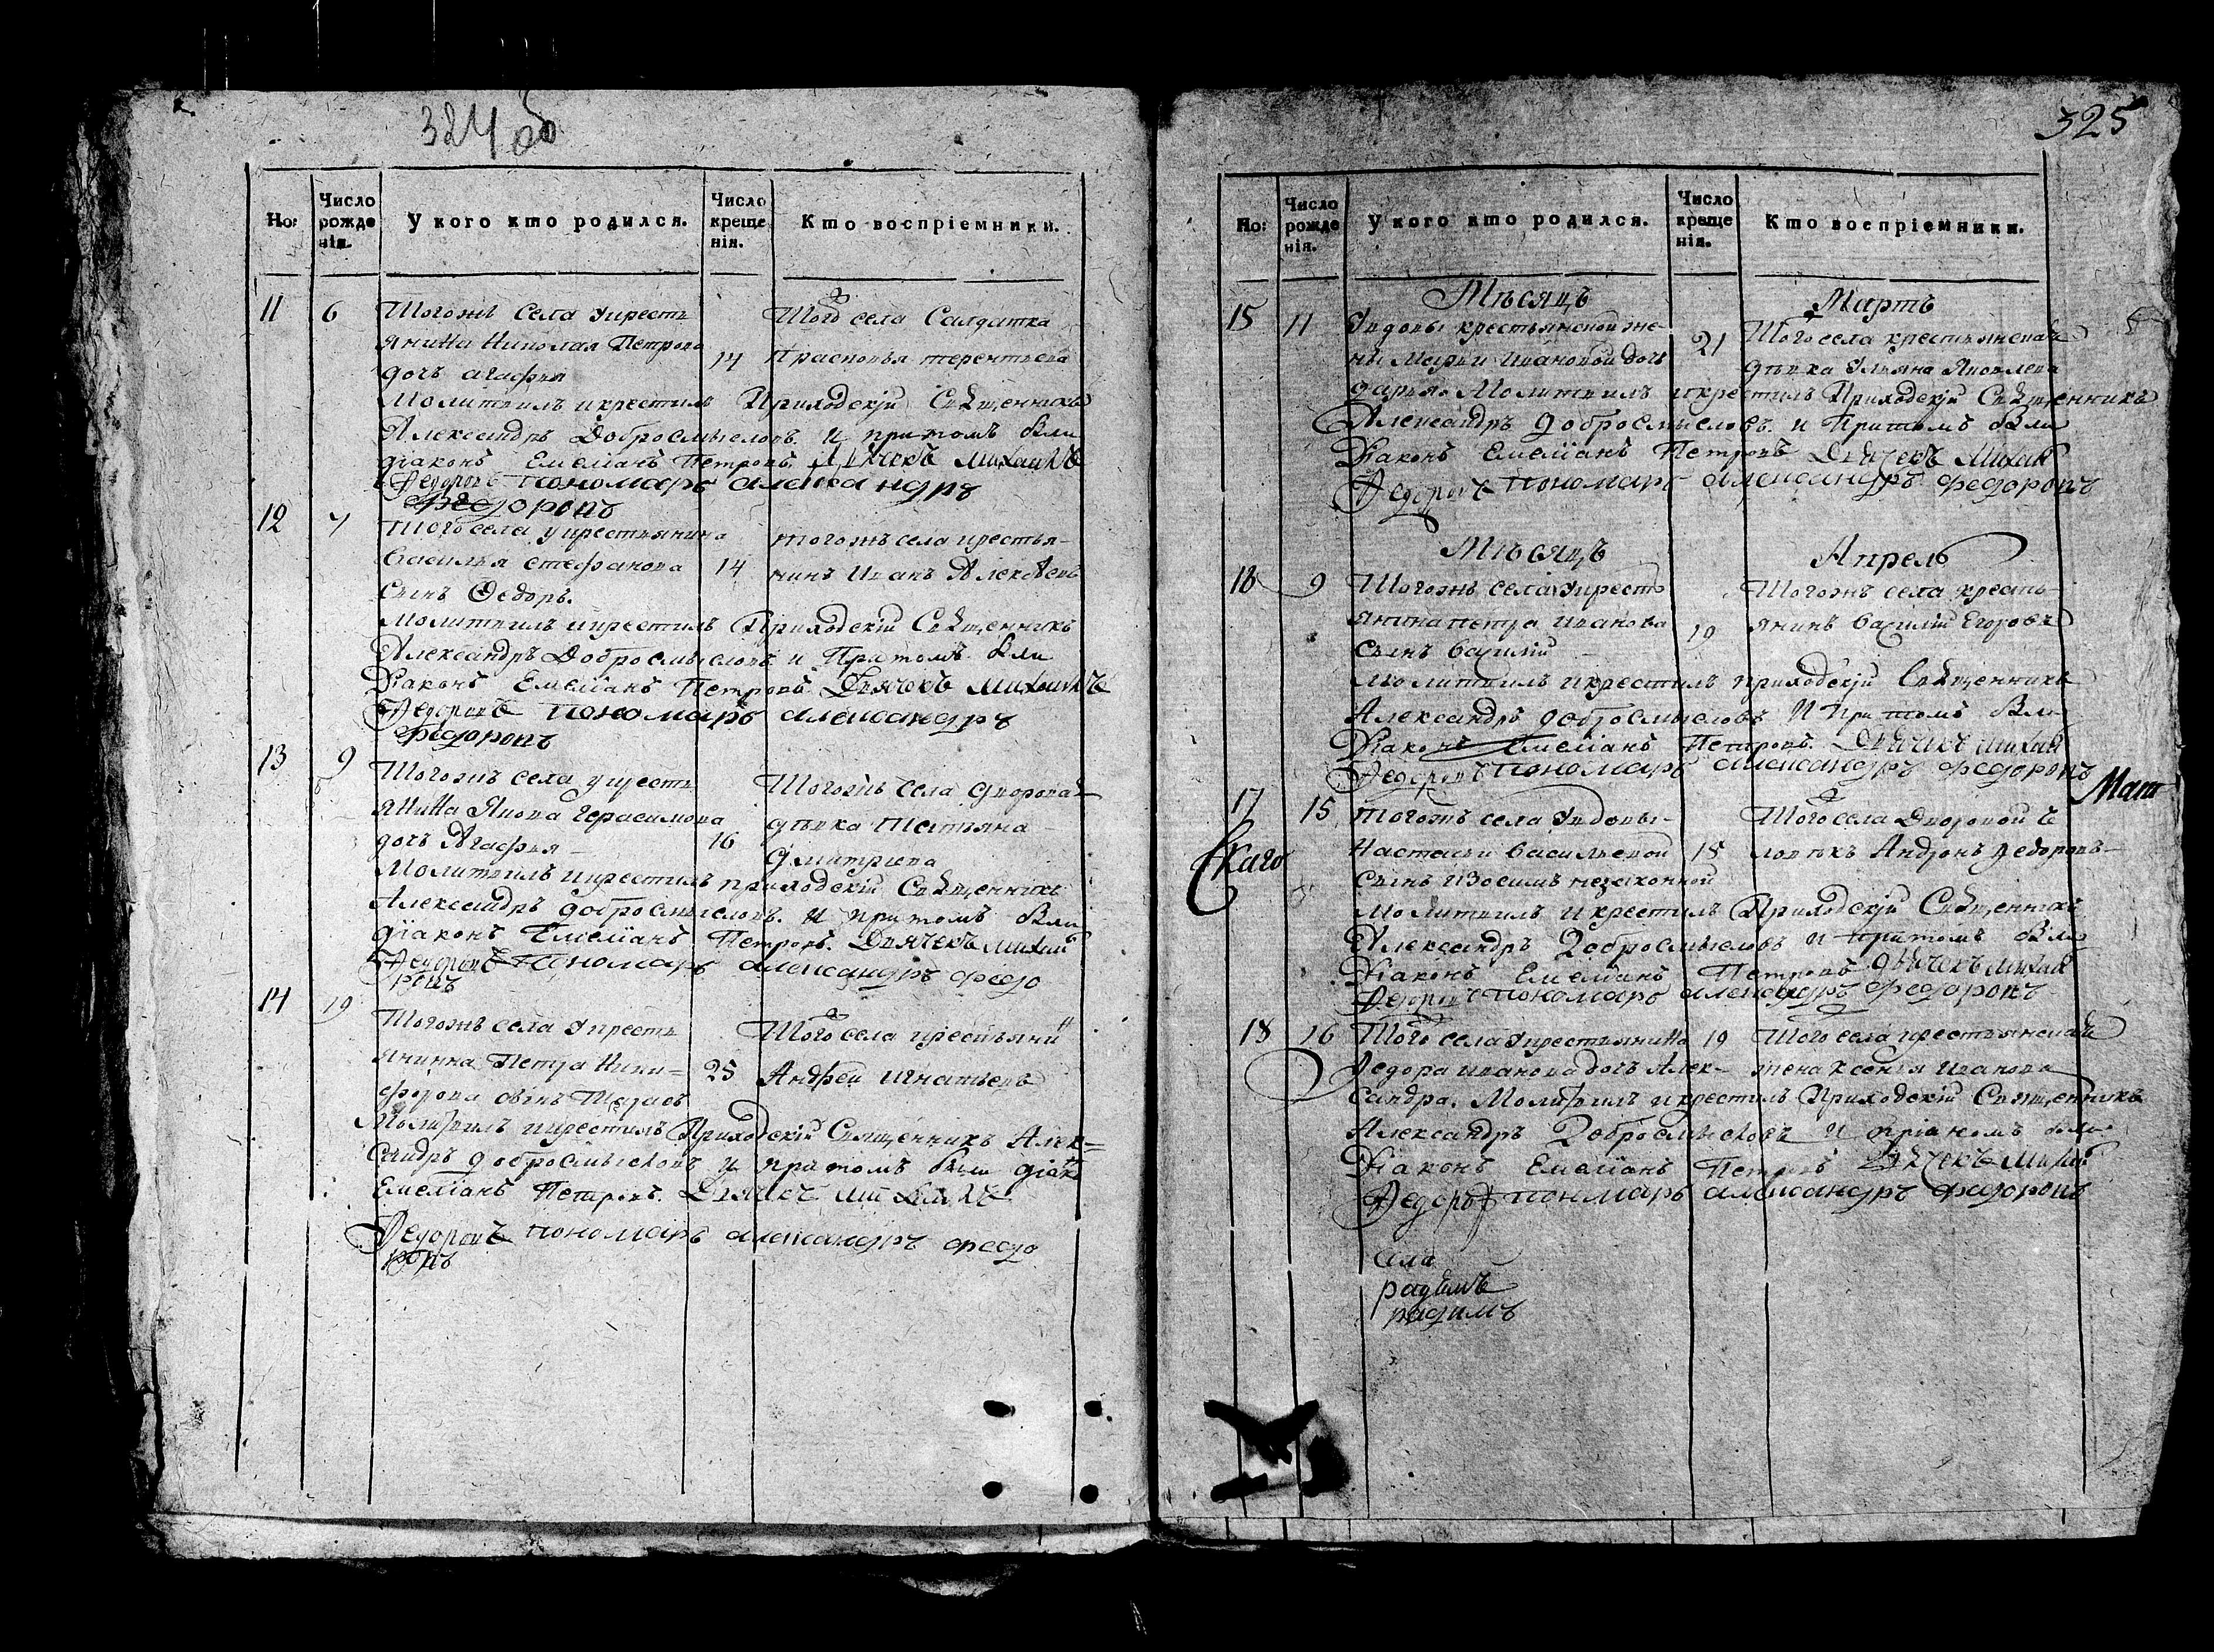 324 об
Но:
Число рожде нія.
У кого кто родился.
Число креще нія.
Кто воспріемники.
11 6 Тогожъ села у крестъ
янина Николая Петрова
дочь Агафья
14
Того села Салдатка
Прасковья терентьева
Молитвилъ и крестилъ Приходскій Священникъ
Александръ Добросмысловъ. и притомъ были
діаконъ Емеліанъ Петровъ. Дьячекъ Михаилъ
Федоровъ пономарь александръ
федоровъ
12 7 Того села у крестьянина
Василья стефанова
сынъ Федоръ.
14
тогожъ села крестья-
нинъ Иванъ Алексѣевъ
Молитвилъ и крестилъ Приходскій Священникъ
Александръ Добросмысловъ и Притомъ были
Діаконъ Емеліанъ Петровъ Дьячекъ Михаилъ
Федоровъ пономарь александръ
федоровъ
13 9 Тогожъ села у крестъ
янина Якова Герасимова
дочь Агафья
16
Тогожъ села дворовая
дѣвка Татьяна
Дмитриева
Молитвилъ и крестилъ приходскій Священникъ
Александръ добросмысловъ. и притомъ были
діаконъ Емеліанъ Петровъ. Дьячекъ Михаил
Федоровъ пономарь александръ федо
ровъ
14 19 Тогожъ села у кресть
янинна Петра Ники=
форова сынъ
25
Того села крестьянин
Андрей Игнатьевъ
Молитвилъ и крестилъ Приходскій Священникъ Алек=
сандръ добросмысловъ и притомъ были діакон
Емеліанъ Петровъ. Дьячекъ
Федоровъ пономарь александръ федо
ровъ
325
Но:
Число рожде нія.
У кого кто родился.
Число креще нія.
Кто воспріемники.
Мѣсяцъ Мартъ
15 11 У вдовы крестьянской же-
ны Марьи Ивановой дочь
21
Того села крестьянская
дѣвка Ульяна Яковлева
дарья. Молитвилъ и крестилъ Приходскій Священникъ
Александръ добросмысловъ. и Притомъ были
Діаконъ Емеліанъ Петровъ Дьячекъ Михаил
Федоровъ пономарь александръ федоровъ
Мѣсяцъ Апрель
16 9 Тогожъ села у кресть
янина петра Иванова
сынъ Василий
19
Тогожъ села кресть-
янинъ Василій Егоровъ
Молитвилъ и крестилъ приходскій Священникъ
Александръ добросмысловъ И притомъ были
Діаконъ Емеліанъ Петровъ. Дьячекъ Михаил
Федоровъ пономарь александръ федоровъ
Мат
17 15 тогожъ села У вдовы-
Настасьи Васильевой
сынъ незаконной
18
Того села Дворовой че
ловѣкъ Андронъ Федоровъ
скаго
Молитвилъ и крестилъ Приходскій Священникъ
Александръ Добросмысловъ и притомъ были
Діаконъ Емеліанъ Петровъ дьячекъ Михаил
Федоровъ пономарь александръ федоровъ
18 16 Того села У крестьянина
Федора иванова дочь Алек-
19
Того села крестьянская
жена Ксенья Иванова
сандра. Молитвилъ и крестилъ Приходскій Священникъ
Александръ Добросмысловъ И притомъ были
Діаконъ Емеліанъ Петровъ Дьячекъ Михаил
Федоровъ пономарь александръ федоровъ